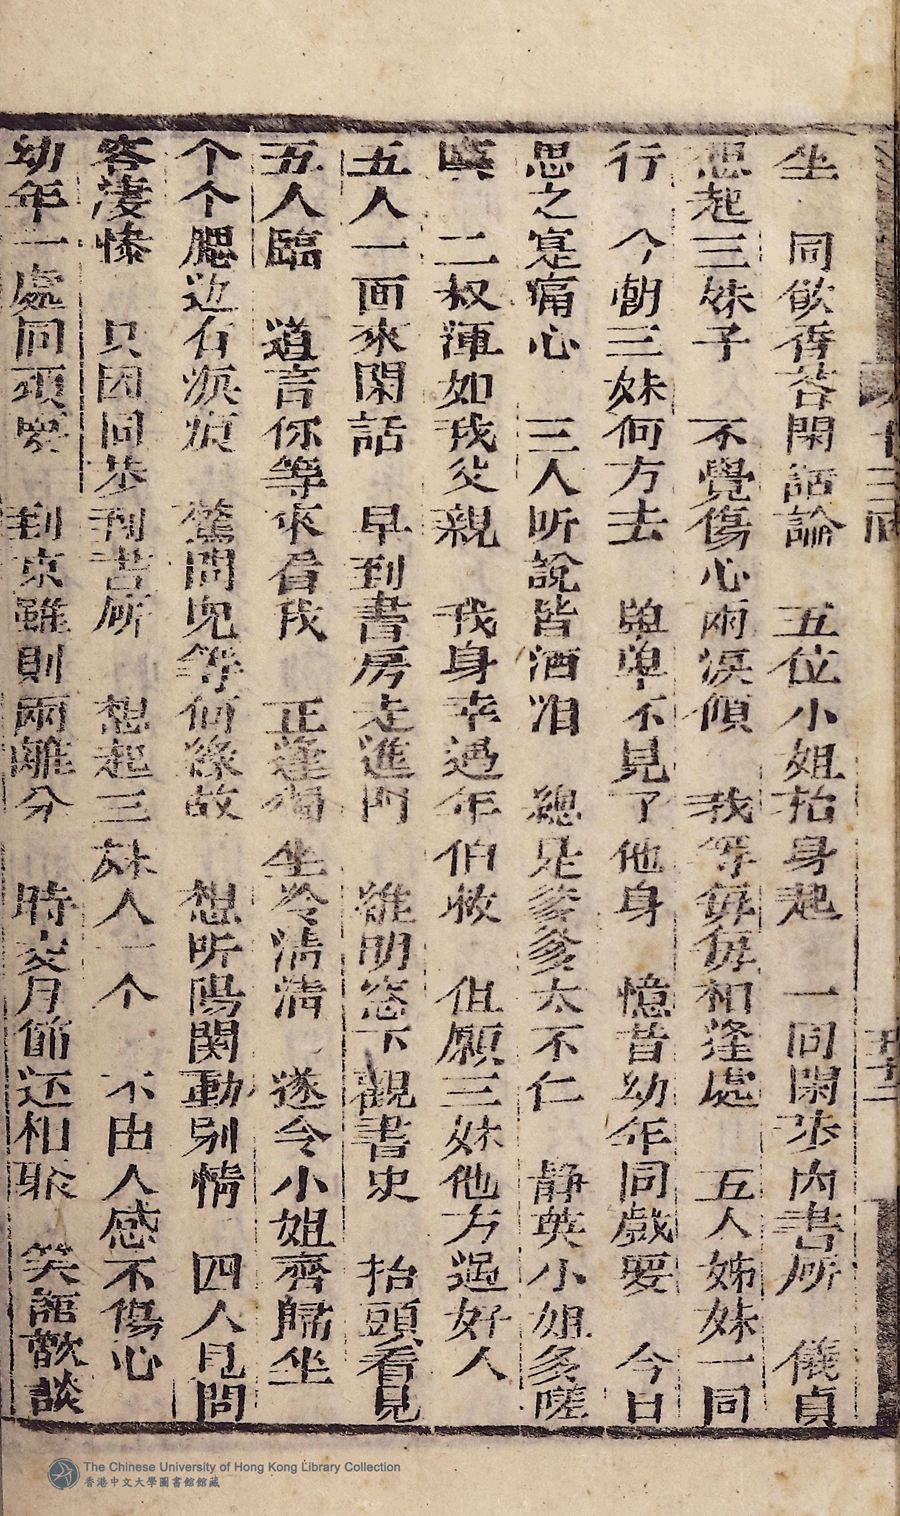 坐 同飲香茗閑話論 五位小姐抬身起 一同閑步內書所 儀貞
想起三妹子 不覺傷心兩淚傾 我等每每相逢處 五人姊妹一同
行 今朝三妹何方去 單單不見了他身 憶昔幼年同戲耍 今日
思之寔痛心 三人听說皆洒泪 總是爹爹太不仁 静英小姐多嗟
嘆 二叔渾如我父親 我身幸過年伯救 但願三妹他方遇好人
五人一面來閑話 早到書房走進門 維明窓下觀書史 抬頭看見
五人臨 道言你等來看我 正逢獨坐冷清清 遂令小姐齊歸坐
个个腮边有淚痕 驚問兒等何緣故 想听陽関動别情 四人見問
容淒慘 只因同步到書所 想起三妹人一个 不由人感不傷心
幼年一處同頑耍 到京雖則兩離分 時交月節还相聚 笑語歡談
The Chinese University of Hong Kong Library Collection
香港中文大學圖書館館藏